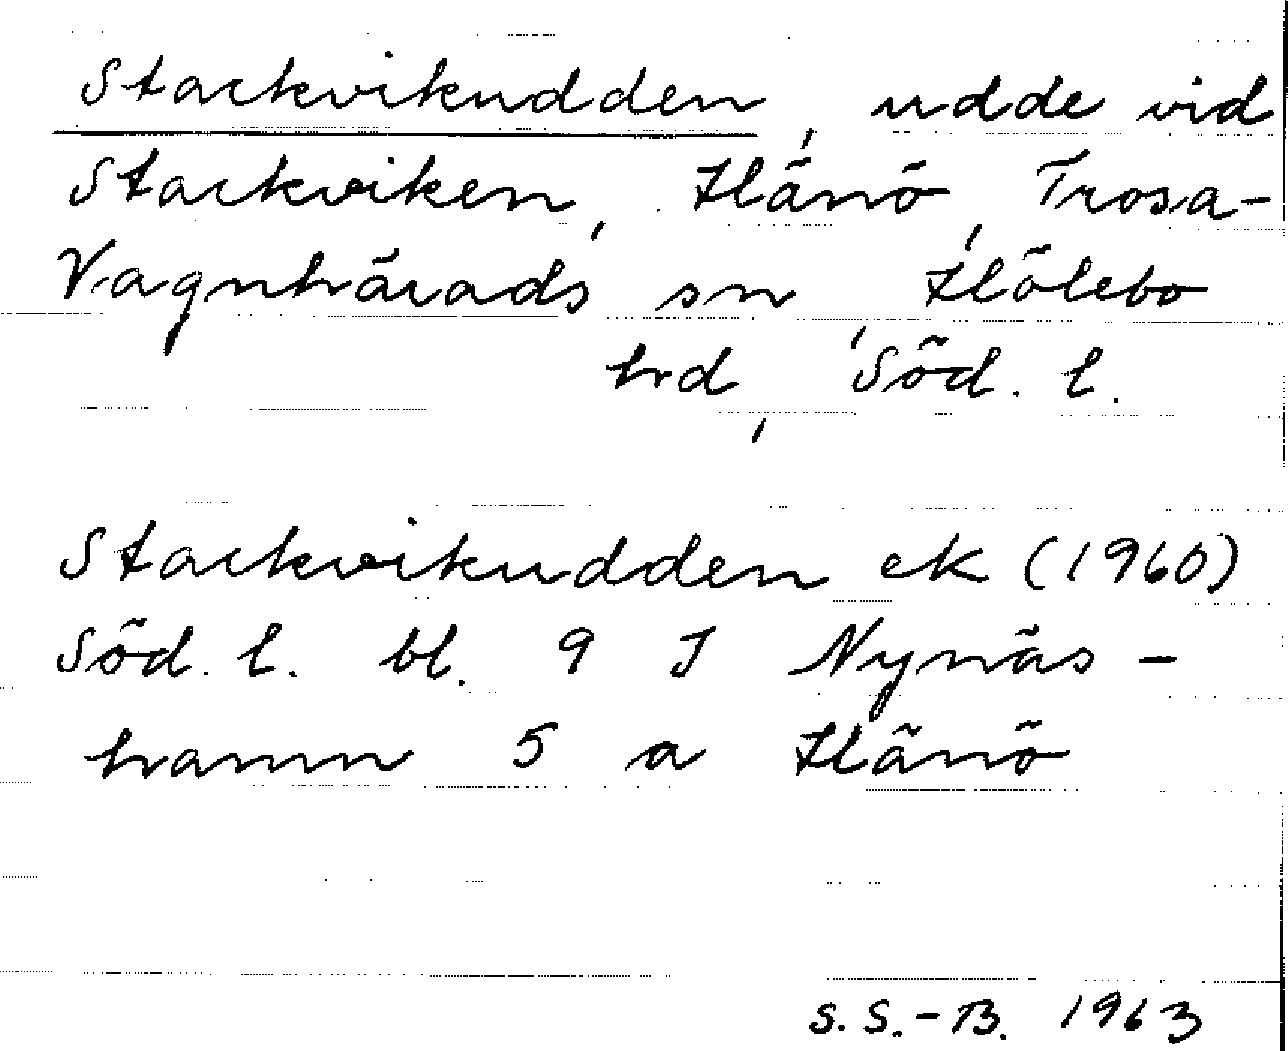 Stackvikudden, udde vid
Stackviken, Hänö, Trosa-
Vagnhärads sn, Hölebo
hrd, Söd. l.
Stackvikudden ek (1960)
Söd. l. bl. 9 I Nynäs-
hamn 5 a Hänö
S. S.-B. 1963